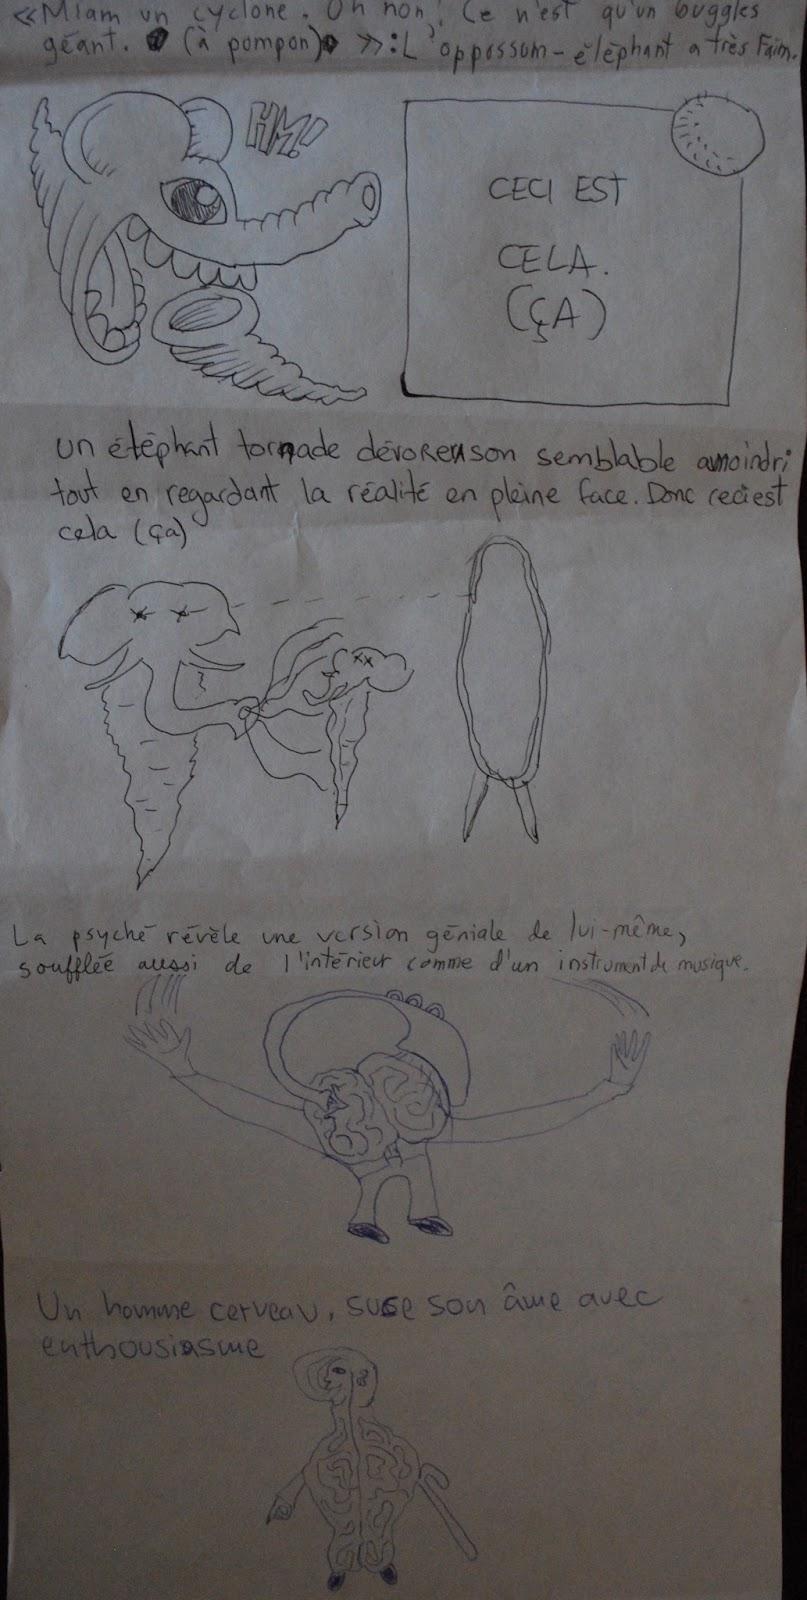 «Miam un cyclone. Oh non! Ce n'est qu'un buggles
géant. (à pompon) »: L'oppossom-éléphant a très Faim.
HM!
CECI EST
CELA.
(ÇA)
un éléphant tornade dévore son semblable amoindri
tout en regardant la réalité en pleine face. Donc ceci est
cela (ça)
La psyché révèle une version géniale de lui-même,
soufflée aussi de l'intérieur comme d'un instrument de musique.
Un homme cerveau, suce son âme avec
enthousiasme